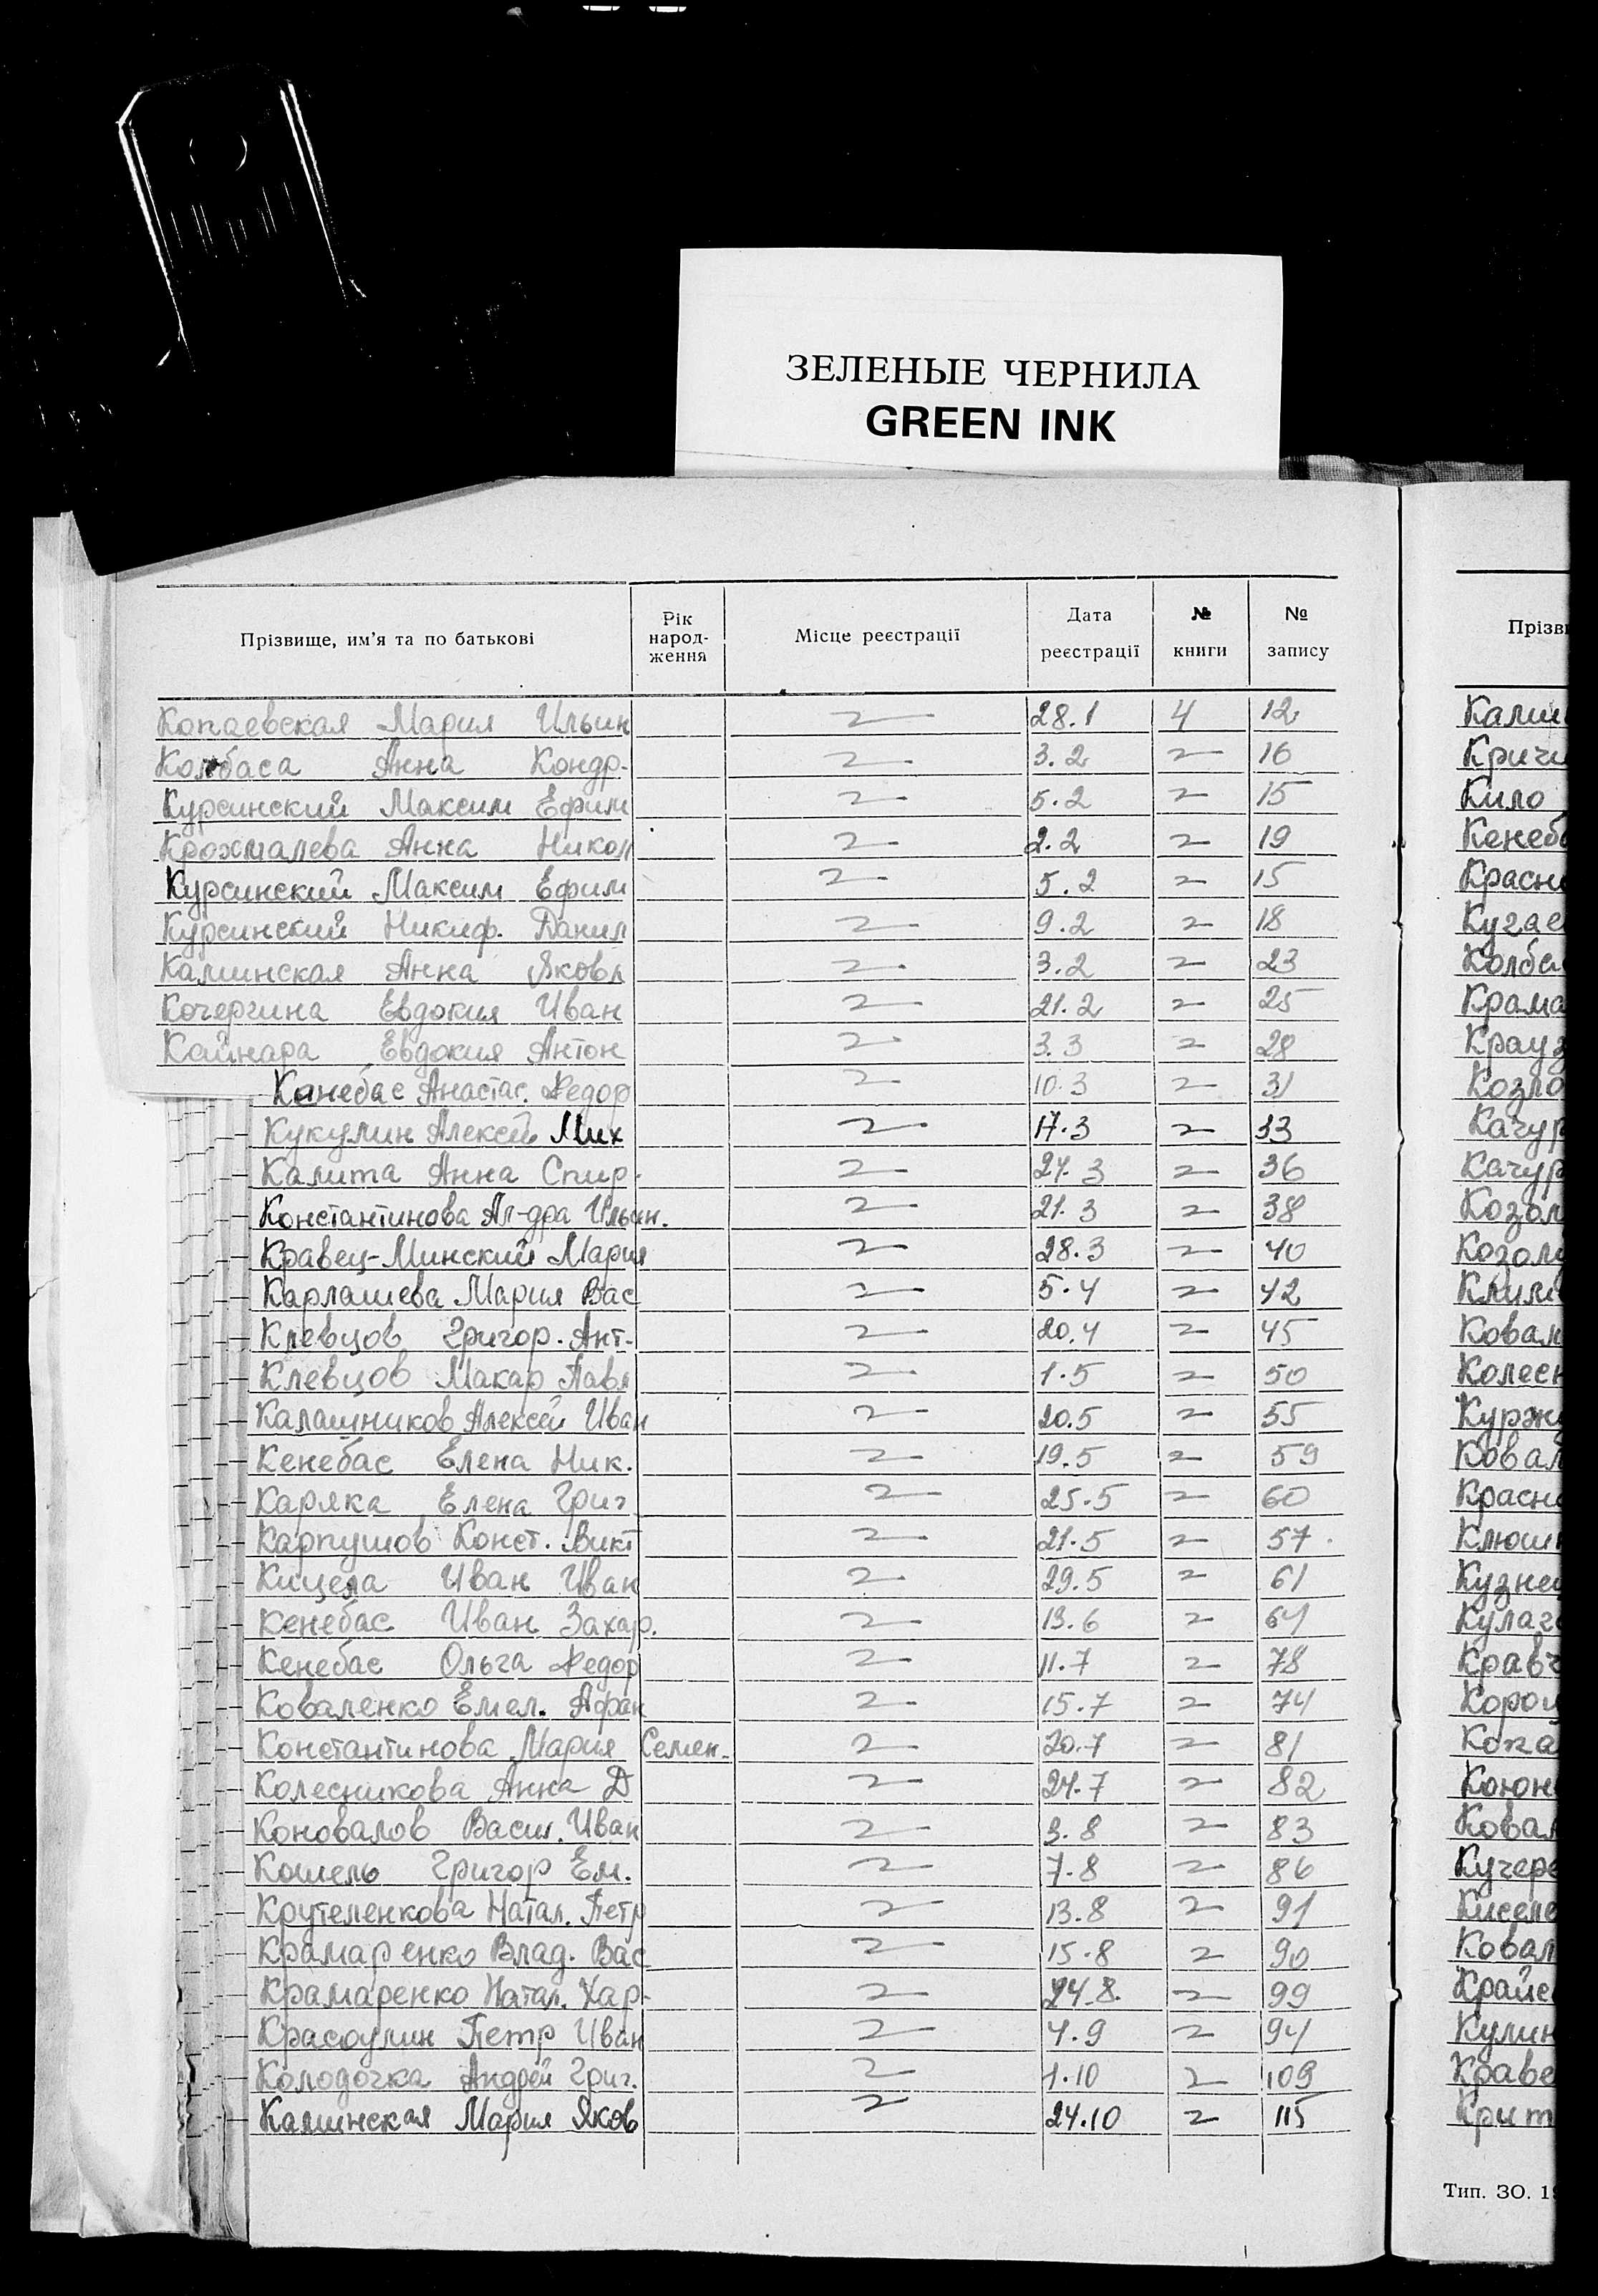 ЗЕЛЕНЫЕ ЧЕРНИЛА
GREEN INK
Прізвище, им'я та по батькові Рік народ-ження Місце реєстрації Дата реєстрації № книги № запису
Копаевская Мария Ильин 〃 28.1 4 12
Колбаса Анна Кондр. 〃 3.2 〃 16
Курсинский Максим Ефим 〃 5.2 〃 15
Крохмалева Анна Никол 〃 2.2 〃 19
Курсинский Максим Ефим 〃 5.2 〃 15
Курсинский Никиф. Данил 〃 9.2 〃 18
Калинская Анна Яковл 〃 3.2 〃 23
Кочергина Евдокия Иван 〃 21.2 〃 25
Кайнара Евдокия Антон 〃 3.3 〃 28
Канебас Анастас. Федор 〃 10.3 〃 31
Кукулин Алексей Мих 〃 17.3 〃 33
Калита Анна Спир. 〃 24.3 〃 36
Константинова Ал-дра Ильин. 〃 21.3 〃 38
Кравец-Минский Мария 〃 28.3 〃 40
Карлашева Мария Вас 〃 5.4 〃 42
Клевцов Григор. Ант. 〃 20.4 〃 45
Клевцов Макар Павл 〃 1.5 〃 50
Калашников Алексей Иван 〃 20.5 〃 55
Кенебас Елена Ник. 〃 19.5 〃 59
Каряка Елена Григ 〃 25.5 〃 60
Карпушов Конст. Викт 〃 21.5 〃 57
Кицела Иван Иван 〃 29.5 〃 61
Кенебас Иван Захар. 〃 13.6 〃 64
Кенебас Ольга Федор 〃 11.7 〃 78
Коваленко Емел. Афан 〃 15.7 〃 74
Константинова Мария Семен. 〃 20.7 〃 81
Колесникова Анна Д 〃 24.7 〃 82
Коновалов Васил. Иван 〃 3.8 〃 83
Кошель Григор Ем. 〃 7.8 〃 86
Крутеленкова Натал. Петр 〃 13.8 〃 91
Крамаренко Влад. Вас 〃 15.8 〃 90
Крамаренко Натал. Хар. 〃 24.8. 〃 99
Красоулин Петр Иван 〃 4.9 〃 94
Колодочка Андрей Григ. 〃 1.10 〃 109
Калинская Мария Яков 〃 24.10 〃 115
Прізви
Кричи
Кило
Кенеб
Красн
Кугае
Колба
Крама
Крауз
Козло
Качур
Качур
Козол
Козол
Клим
Ковал
Колесн
Курж
Ковал
Красн
Клюш
Кузнец
Кулаг
Кравч
Корот
Копа
Ковал
Кучер
Кисел
Ковал
Крайс
Кулин
Краве
Крит
Тип. ЗО. 1